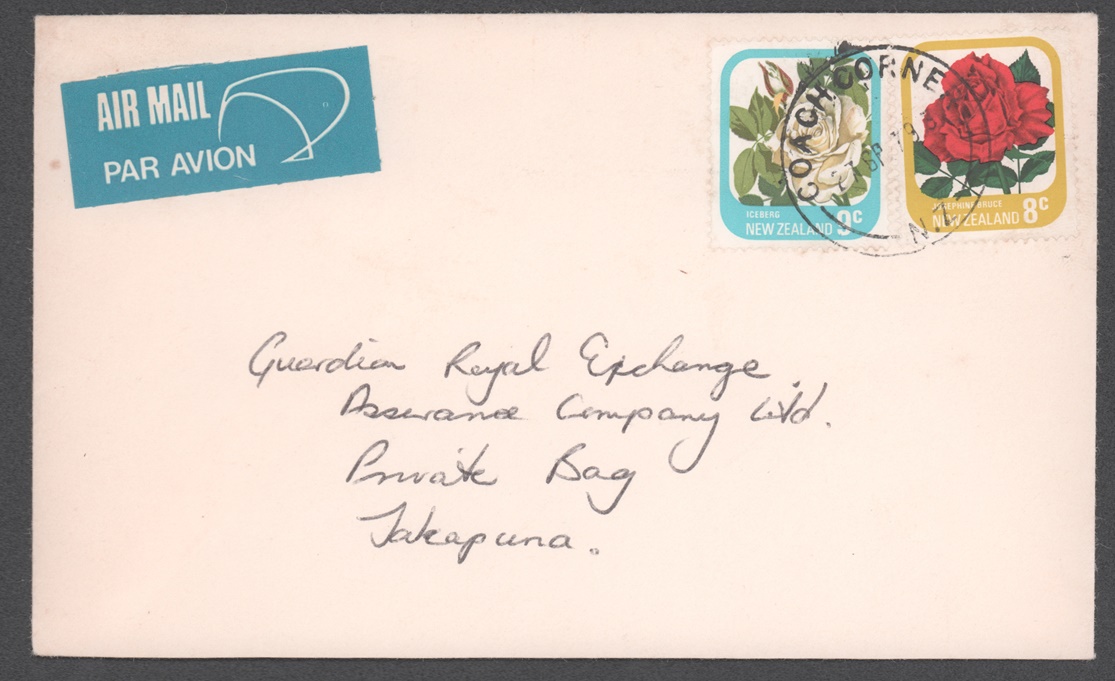 AIR MAIL
PAR AVION
COACH CORNER
27 SP 79
N.Z.
ICEBERG
NEW ZEALAND 9c
JOSEPHINE BRUCE
NEW ZEALAND 8c
Guardian Royal Exchange
Assurance Company Ltd.
Private Bag
Takapuna.